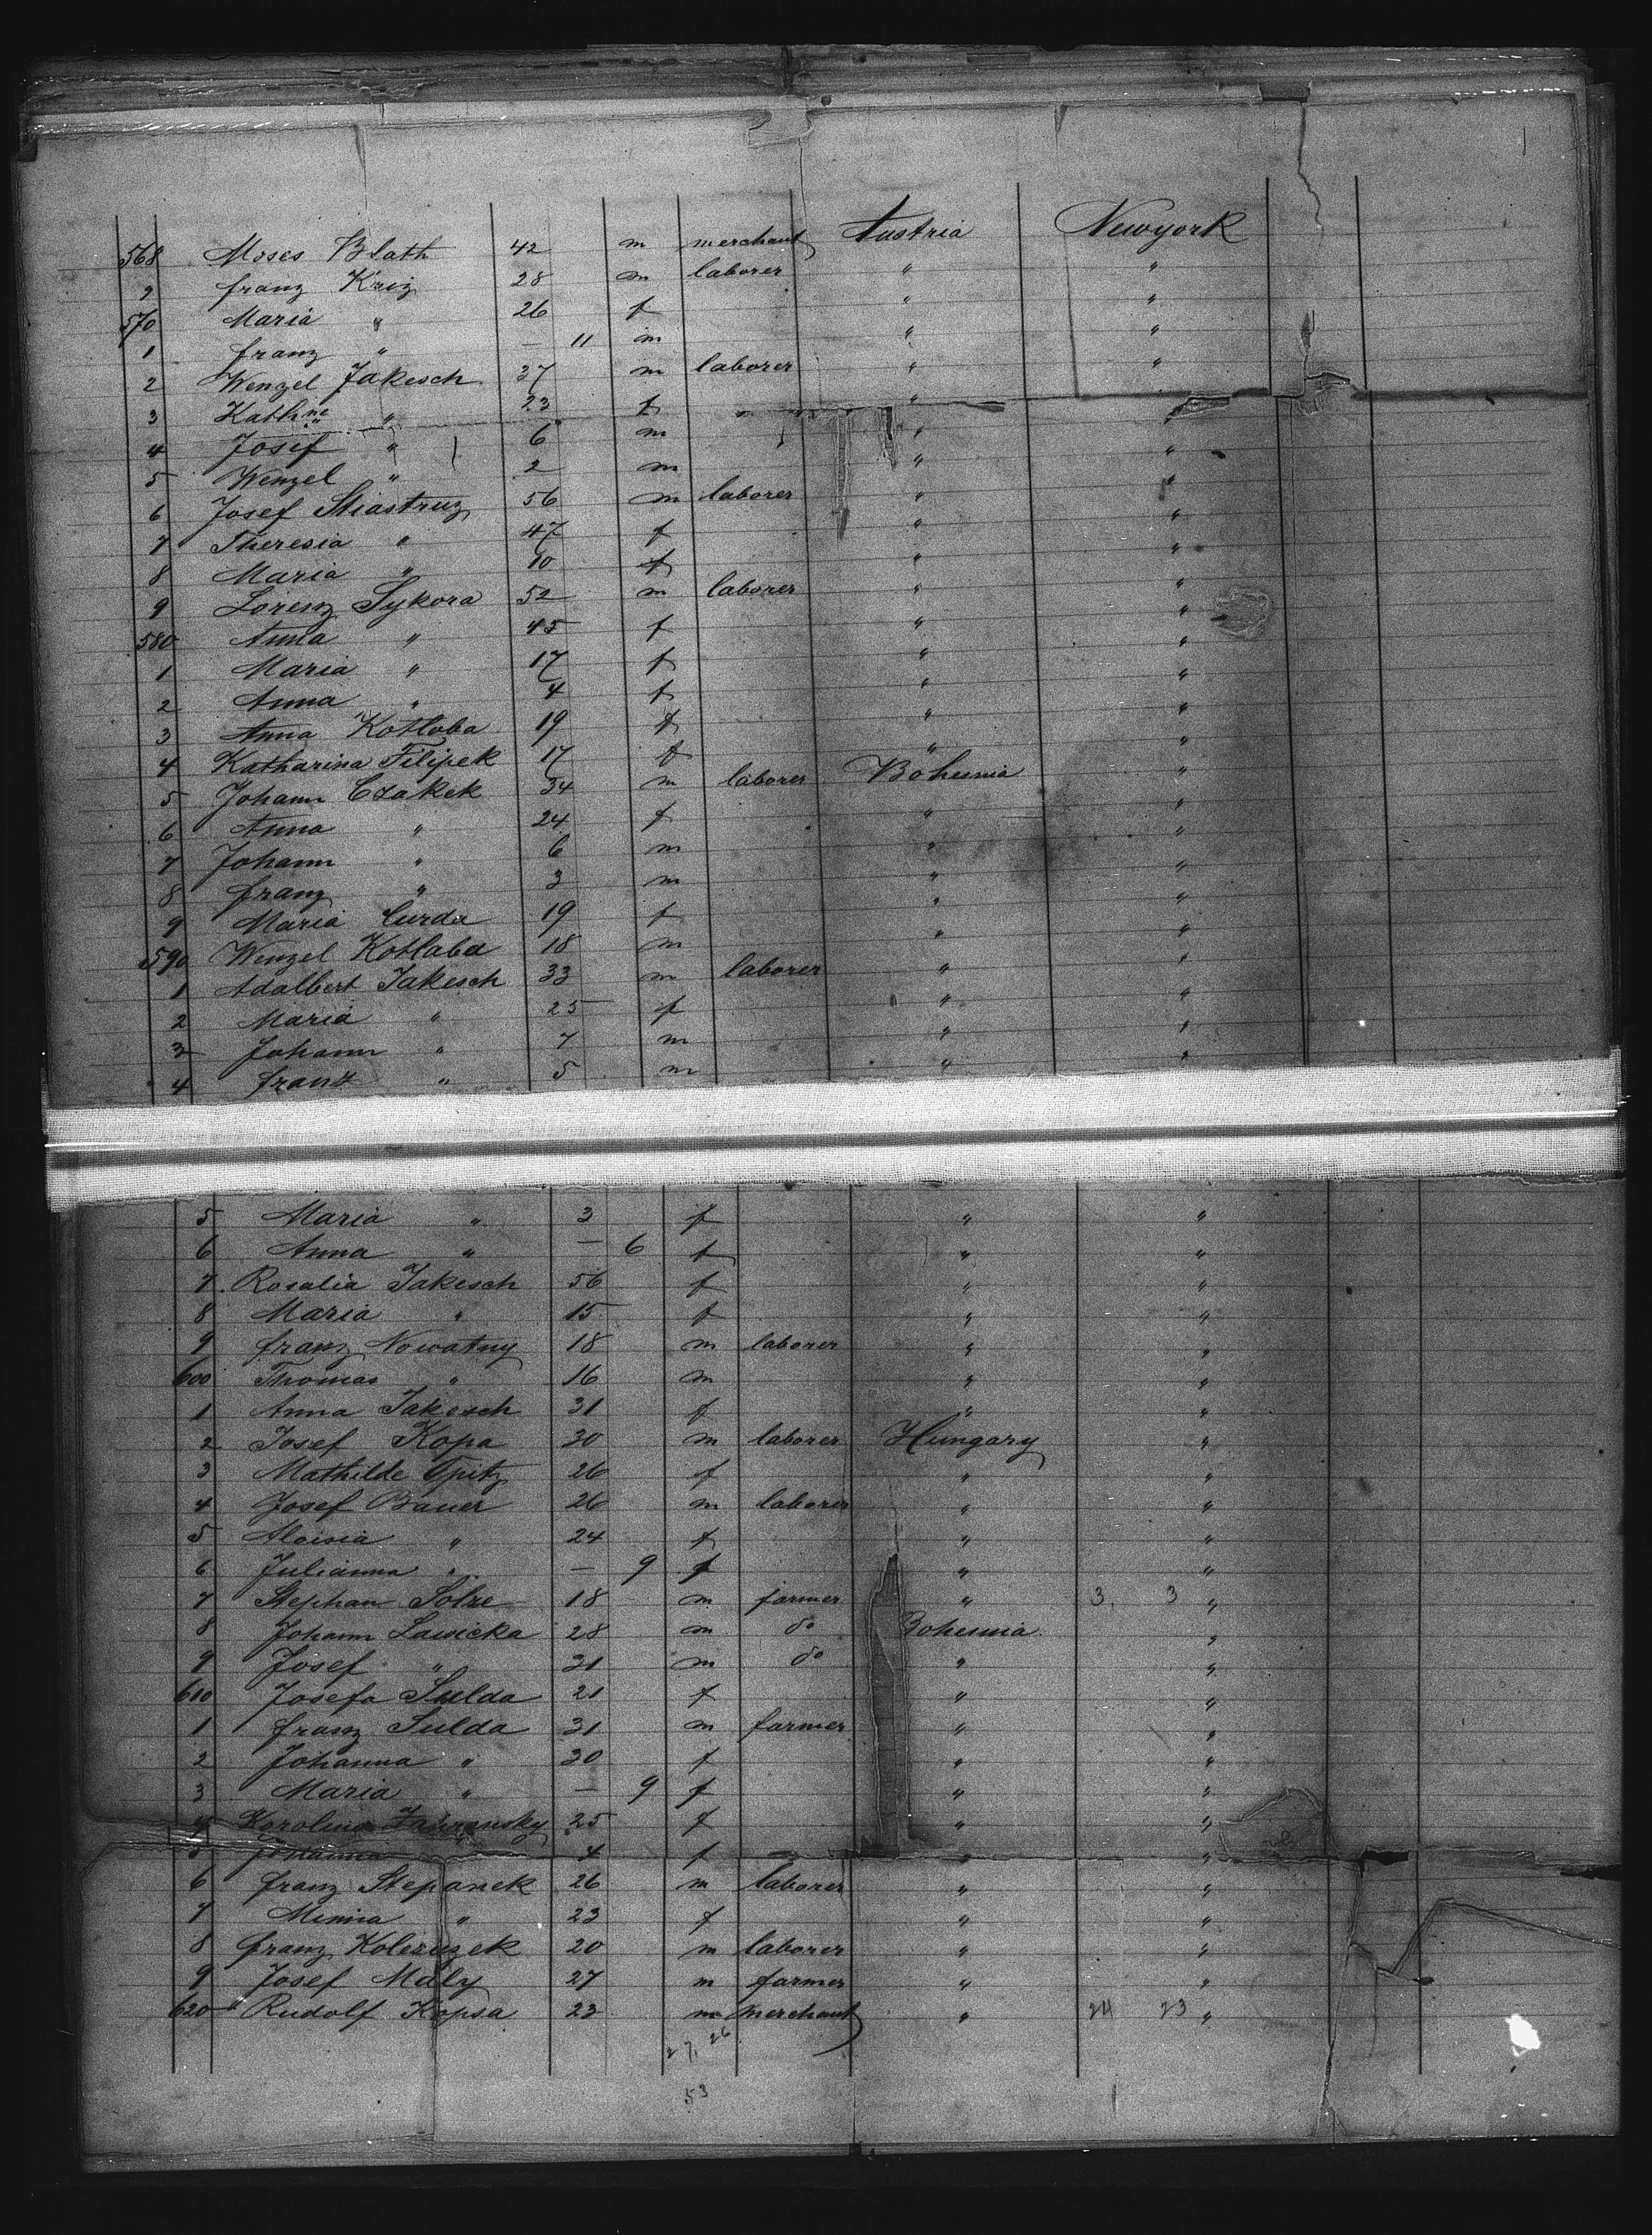 568 Moses Blath 42 m merchant Austria Newyork
9 franz Kriz 28 m laborer " "
570 Maria " 26 f " "
1 franz " — 11 m " "
2 Wenzel Jakesch 37 m laborer " "
3 Kathne " 23 f " "
4 Josef " 6 m " "
5 Wenzel " 2 m " "
6 Josef 56 m laborer " "
7 Theresia " 47 f " "
8 Maria " 10 f " "
9 Lorenz Sykora 52 m laborer " "
580 Anna " 45 f " "
1 Maria " 17 f " "
2 Anna " 4 f " "
3 Anna Kotloba 19 f " "
4 Katharina Filipek 17 f " "
5 Johann Czakek 34 m laborer Bohemia "
6 Anna " 24 f " "
7 Johann " 6 m " "
8 franz " 3 m " "
9 Maria Curda 19 f " "
590 Wenzel Kotlaba 18 m " "
1 Adalbert Jakesch 33 m laborer " "
2 Maria " 25 f " "
3 Johann " 7 m " "
4 franz " 5 m " "
5 Maria " 3 f " "
6 Anna " — 6 f " "
7 Rosalia Jakesch 56 f " "
8 Maria " 15 f " "
9 franz Nowatny 18 m laborer " "
600 Thomas " 16 m " "
1 Anna Jakesch 31 f " "
2 Josef Kopa 30 m laborer Hungary "
3 Mathilde 26 f " "
4 Josef Bauer 26 m laborer " "
5 Aloisia " 24 f " "
6 Julianna " — 9 f " "
7 Stephan 18 m farmer " 3. 3 "
8 Johann Lawicka 28 m do Bohemia "
9 Josef " 31 m do " "
610 Josefa Sulda 21 f " "
1 franz Sulda 31 m farmer " "
2 Johanna " 30 f " "
3 Maria " — 9 f " "
4 Karolina 25 f " "
5 Johanna " 4 f " "
6 franz Stepanek 26 m laborer " "
7 Minna " 23 f " "
8 franz 20 m laborer " "
9 Josef Maly 27 m farmer " "
620 " Rudolf Kopsa 23 m merchant " 24 23 "
27, 26
53